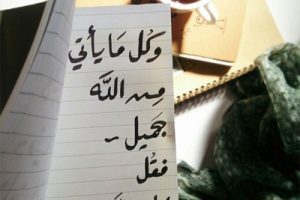 وكل ما يأتي
من الله
جميل ~
فقُل